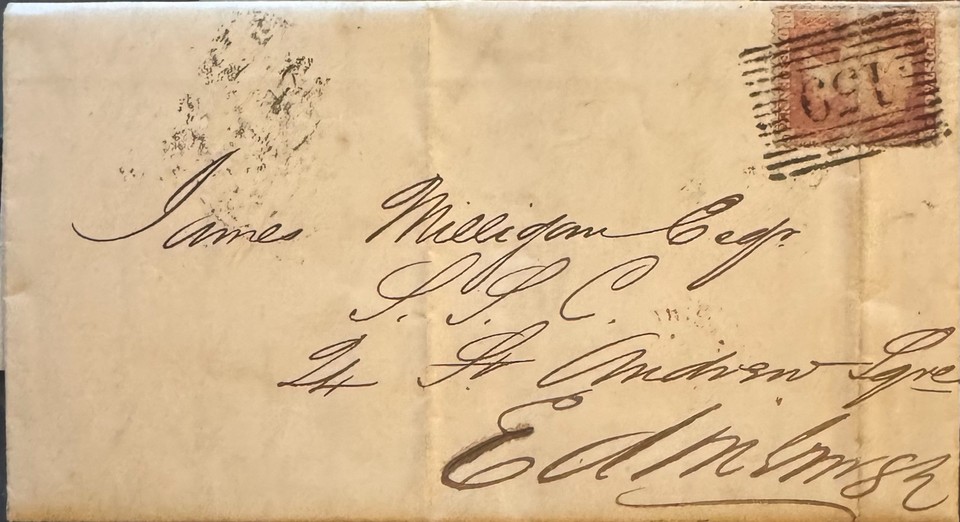 159
James Milligan Esqr
S. S. C.
24 St Andrew Sqre
Edinburgh